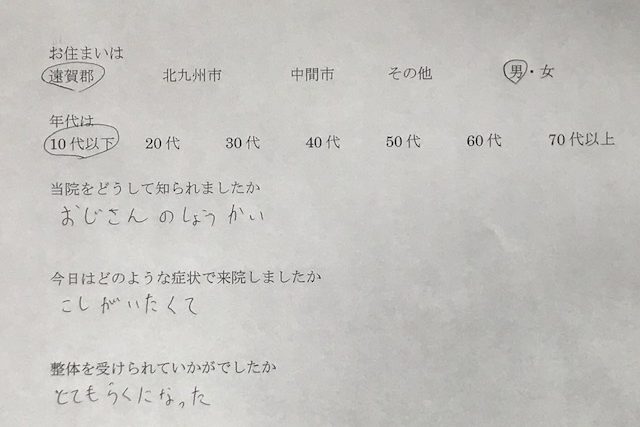 お住まいは
遠賀郡 北九州市 中間市 その他 男・女
年代は
10代以下 20代 30代 40代 50代 60代 70代以上
当院をどうして知られましたか
おじさんのしょうかい
今日はどのような症状で来院しましたか
こしがいたくて
整体を受けられていかがでしたか
とてもらくになった